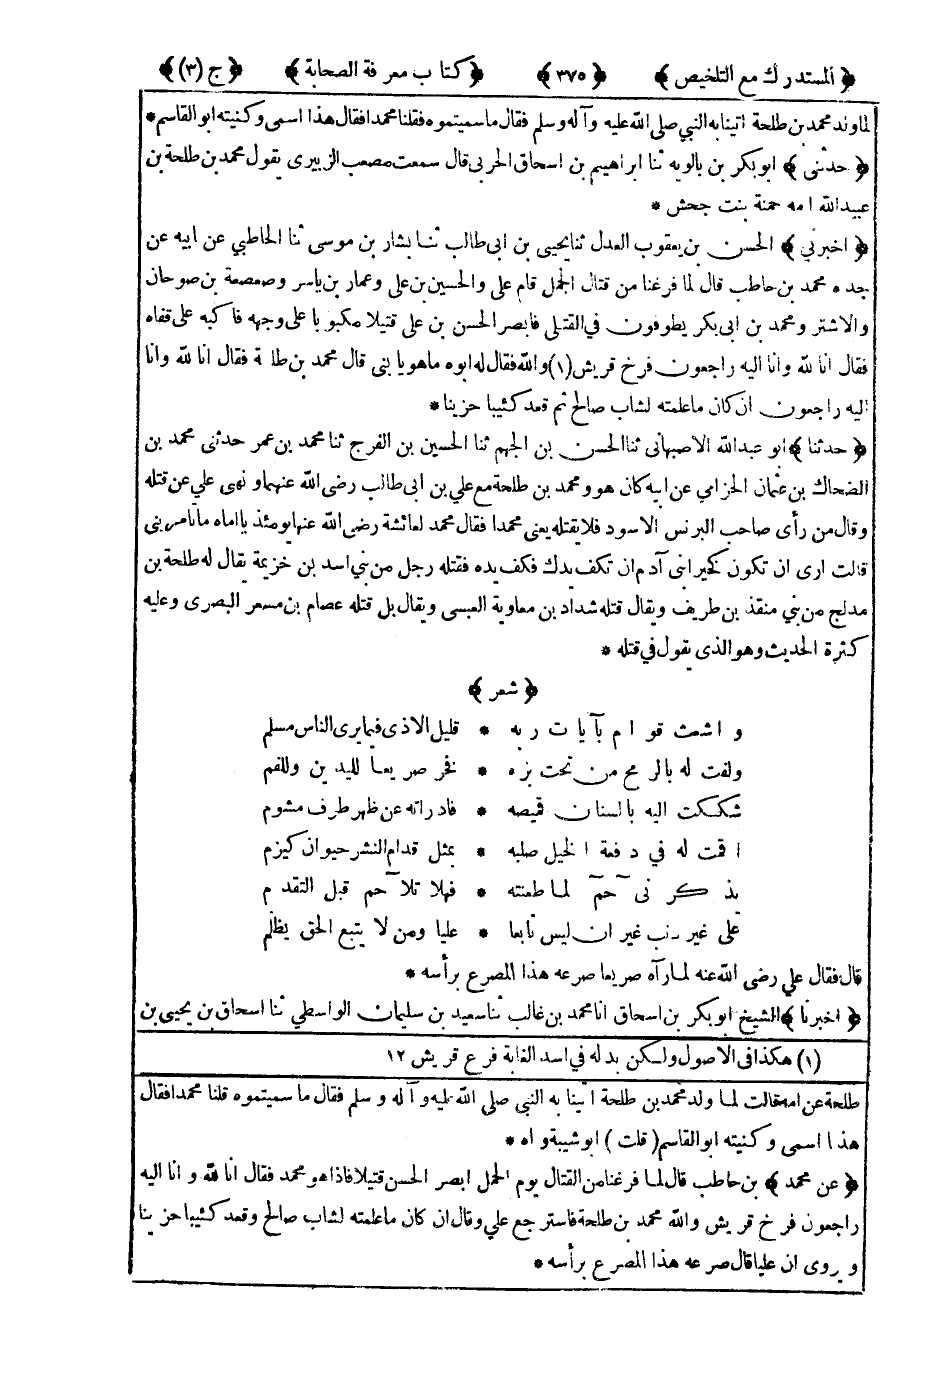 ﴿ المستدرك مع التلخيص ﴾ ﴿ ٣٧٥ ﴾ ﴿ كتاب معرفة الصحابة ﴾ ﴿ ج (٣) ﴾
لما ولد محمد بن طلحة اتينا به النبي صلى الله عليه وآله وسلم فقال ما سميتموه فقلنا محمدا فقال هذا اسمى وكنيته ابو القاسم *
﴿ حدثنى ﴾ ابو بكر بن بالويه ثنا ابراهيم بن اسحاق الحربى قال سمعت مصعب الزبيرى يقول محمد بن طلحة بن
عبيد الله امه حمنة بنت جحش *
﴿ اخبرنى ﴾ الحسن بن يعقوب العدل ثنا يحيى بن ابى طالب ثنا بشار بن موسى ثنا الحاطبي عن ابيه عن
جده محمد بن حاطب قال لما فرغنا من قتال الجمل قام على والحسين بن على وعمار بن ياسر وصعصعة بن صوحان
والاشتر ومحمد بن ابى بكر يطوفون في القتلى فابصر الحسن بن على قتيلا مكبوبا على وجهه فاكبه على قفاه
فقال انا لله وانا اليه راجعون فرخ قريش (١) والله فقال له ابوه ما هو يا بنى قال محمد بن طلحة فقال انا لله وانا
اليه راجعون ان كان ما علمته لشاب صالح ثم قعد كئيبا حزينا *
﴿ حدثنا ﴾ ابو عبد الله الاصبهانى ثنا الحسن بن الجهم ثنا الحسين بن الفرج ثنا محمد بن عمر حدثنى محمد بن
الضحاك بن عثمان الحزامي عن ابيه كان هو ومحمد بن طلحة مع علي بن ابى طالب رضى الله عنهما ونهى علي عن قتله
وقال من رأى صاحب البرنس الاسود فلا يقتله يعنى محمدا فقال محمد لعائشة رضى الله عنها يومئذ يا اماه ما تأمرينى
قالت ارى ان تكون كخير ابنى آدم ان تكف يدك فكف يده فقتله رجل من بني اسد بن خزيمة يقال له طلحة بن
مدلج من بني منقذ بن طريف ويقال قتله شداد بن معاوية العبسى ويقال بل قتله عصام بن مسعر البصرى وعليه
كثرة الحديث وهو الذى يقول في قتله *
﴿ شعر ﴾
واشعث قوام بآيات ربه * قليل الاذى فيما يرى الناس مسلم
ولفت له بالرمح من تحت بزه * فخر صريعا لليدين وللفم
شككت اليه بالسنان قميصه * فادراته عن ظهر طرف مشوم
اقمت له في دفعة الخيل صلبه * بمثل قدام النشر حيوان كيزم
يذكرنى حٓم لما طعنته * فهلا تلا حٓم قبل التقدم
على غير ذنب غير ان ليس تابعا * عليا ومن لا يتبع الحق يظلم
قال فقال علي رضى الله عنه لما رآه صريعا صرعه هذا المصرع برأسه *
﴿ اخبرنا ﴾ الشيخ ابو بكر بن اسحاق انا محمد بن غالب ثنا سعيد بن سليمان الواسطي ثنا اسحاق بن يحيى بن
(١) هكذا فى الاصول ولكن بدله في اسد الغابة فرع قريش ١٢
طلحة عن امه قالت لما ولد محمد بن طلحة اتينا به النبى صلى الله عليه وآله وسلم فقال ما سميتموه قلنا محمدا فقال
هذا اسمى وكنيته ابو القاسم (قلت) ابو شيبة واه *
﴿ عن محمد ﴾ بن حاطب قال لما فرغنا من القتال يوم الجمل ابصر الحسن قتيلا فاذا هو محمد فقال انا لله وانا اليه
راجعون فرخ قريش والله محمد بن طلحة فاسترجع علي وقال ان كان ما علمته لشاب صالح وقعد كئيبا حزينا
وروى ان عليا قال صرعه هذا المصرع برأسه *